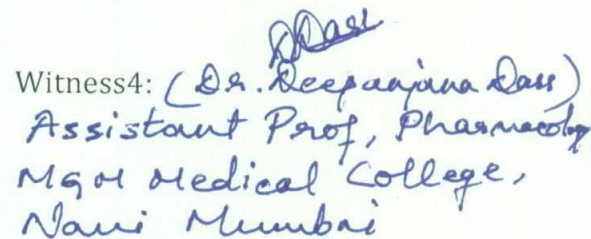 DDass
Witness4: (Dr. Deepanjana Dass)
Assistant Prof, Pharmacology
MGM Medical College,
Navi Mumbai